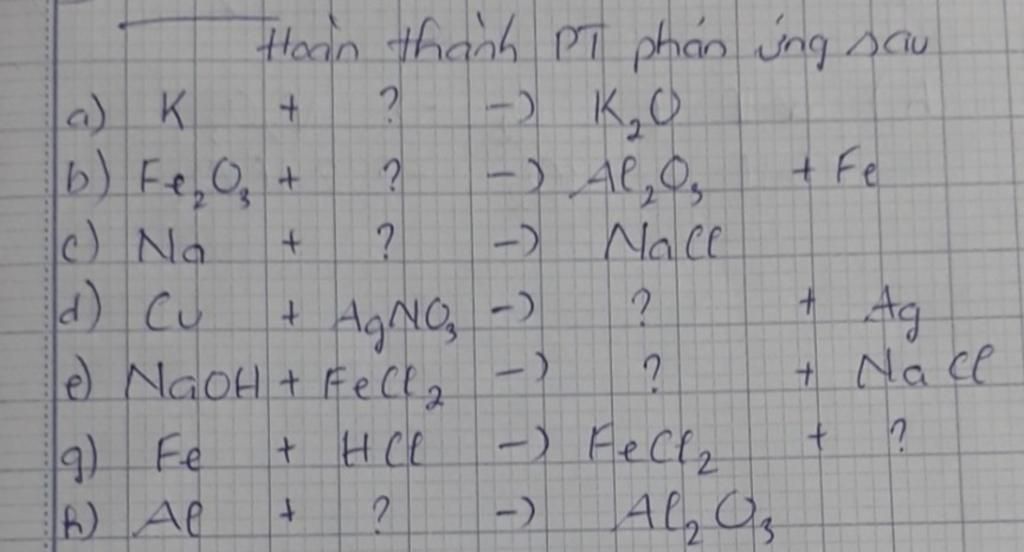 Hoàn thành PT phản ứng sau
a) K + ? -> K₂O
b) Fe₂O₃ + ? -> Al₂O₃ + Fe
c) Na + ? -> NaCl
d) Cu + AgNO₃ -> ? + Ag
e) NaOH + FeCl₂ -> ? + NaCl
g) Fe + HCl -> FeCl₂ + ?
h) Al + ? -> Al₂O₃